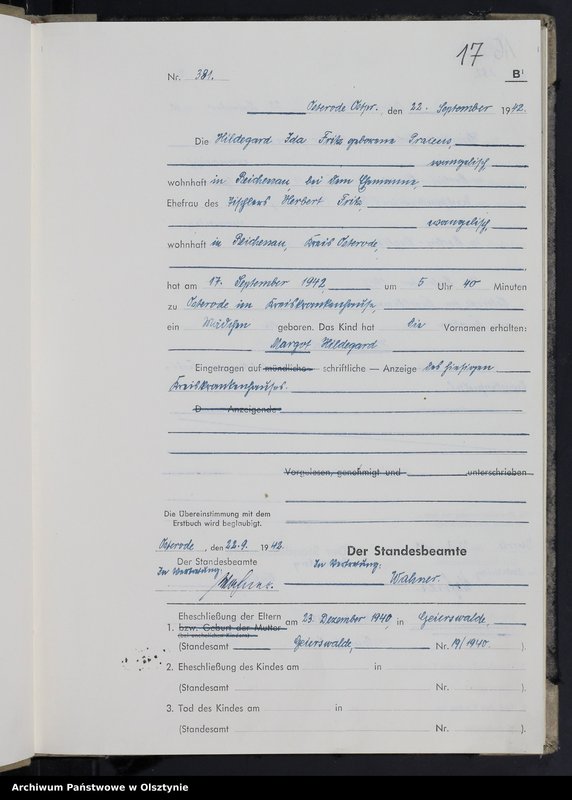 17
Nr. 381.
B¹
Osterode Ostpr., den 22. September 1942.
Die Hildegard Ida Fritz geborene
evangelisch,
wohnhaft in Reichenau, bei dem Ehemanne,
Ehefrau des Tischlers Herbert Fritz,
evangelisch,
wohnhaft in Reichenau, Kreis Osterode,
hat am 17. September 1942, um 5 Uhr 40 Minuten
zu Osterode im Kreiskrankenhause,
ein Mädchen geboren. Das Kind hat die Vornamen erhalten:
Margot Hildegard
Eingetragen auf mündliche — schriftliche — Anzeige des hiesigen
Kreiskrankenhauses.
D Anzeigende
Vorgelesen, genehmigt und unterschrieben
Die Übereinstimmung mit dem
Erstbuch wird beglaubigt.
Osterode, den 22.9. 1942.
Der Standesbeamte
Der Standesbeamte
In Vertretung:
In Vertretung:
Wahner.
Eheschließung der Eltern am 23. Dezember 1940 in Geierswalde,
1. bzw. Geburt der Mutter
(bei unehelichen Kindern)
(Standesamt Geierswalde, Nr. 19/1940. ).
2. Eheschließung des Kindes am in
(Standesamt Nr. ).
3. Tod des Kindes am in
(Standesamt Nr. ).
Archiwum Państwowe w Olsztynie